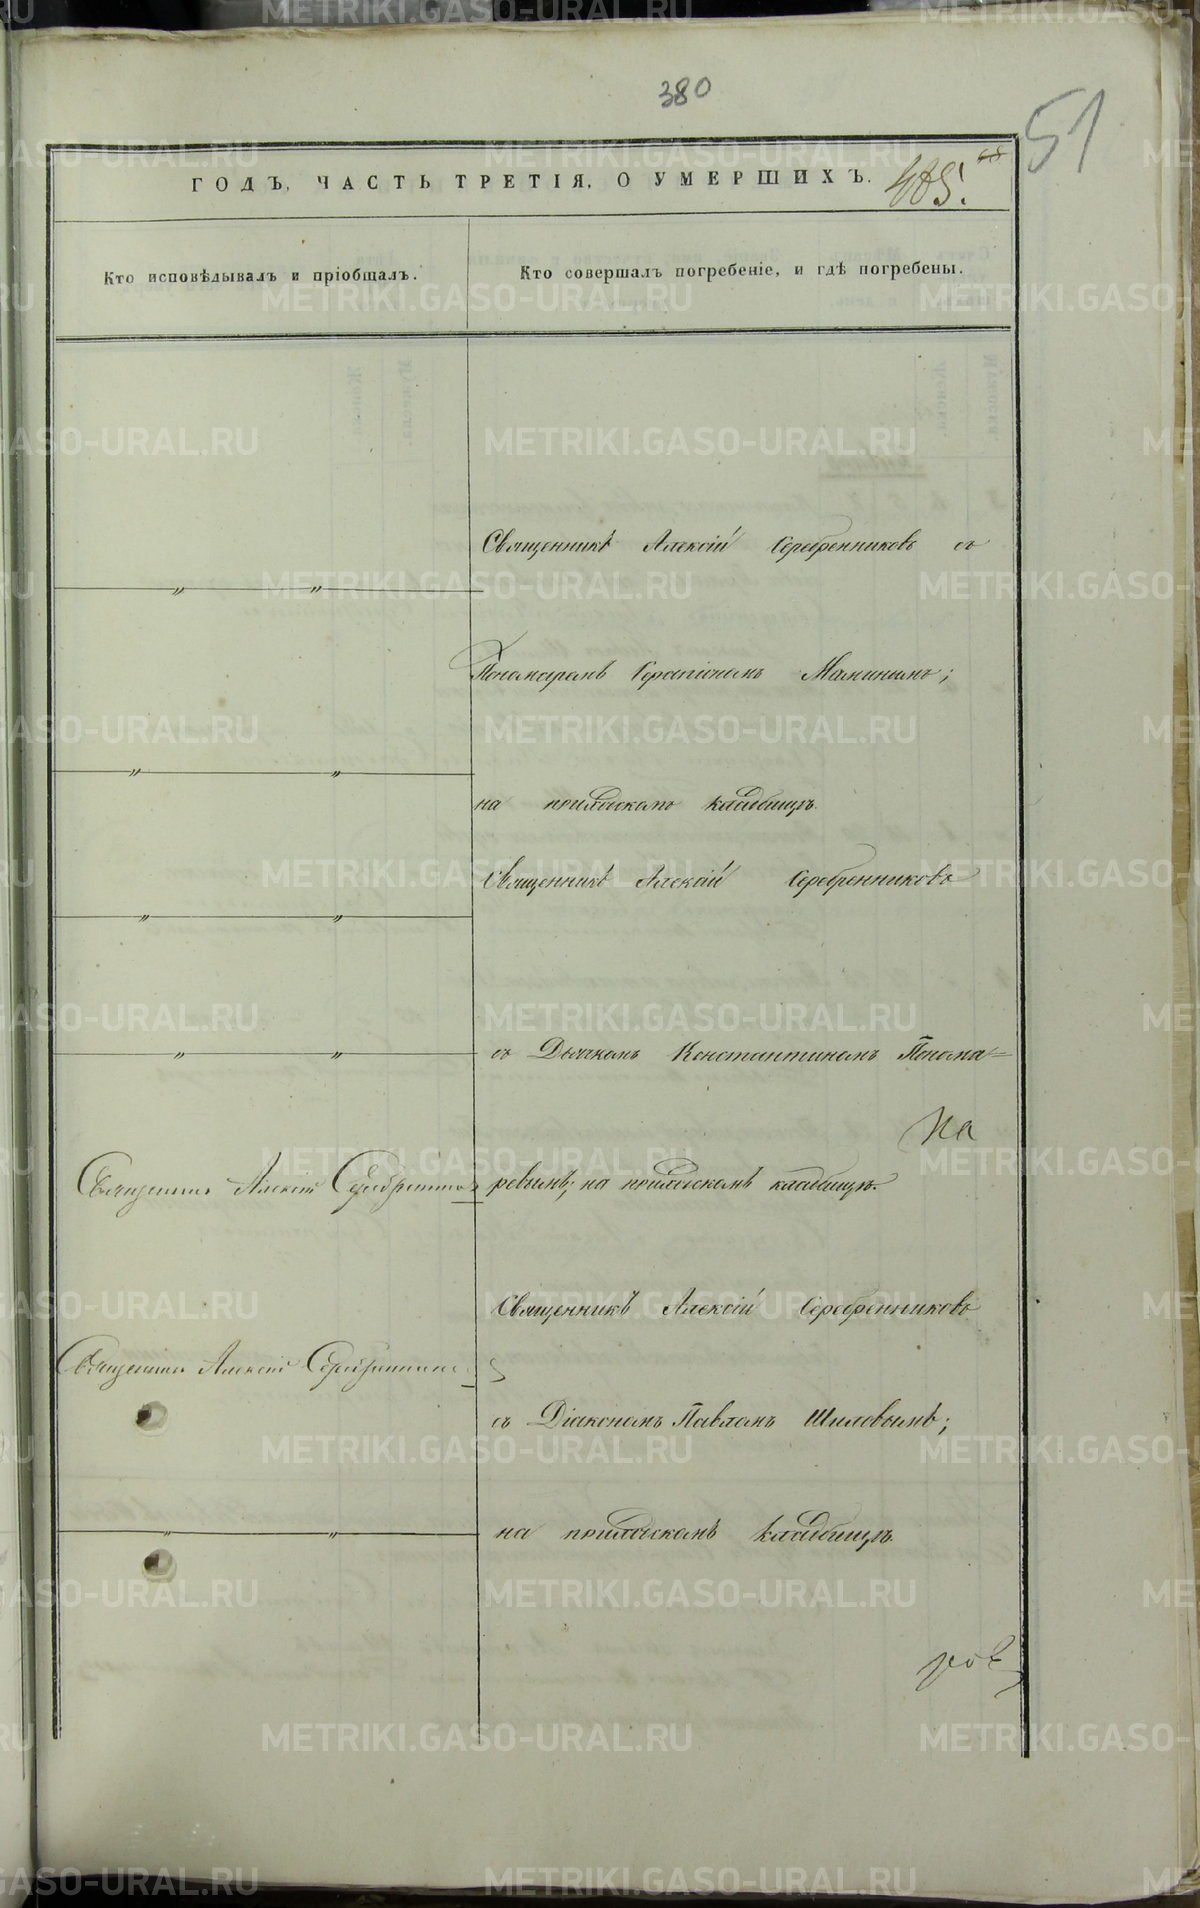 380
51
ГОДЪ, ЧАСТЬ ТРЕТІЯ, О УМЕРШИХЪ. 405.
Кто исповѣдывалъ и пріобщалъ.
Кто совершалъ погребеніе, и гдѣ погребены.
Священникъ Алексій Серебренниковъ съ
Пономаремъ Серапіономъ Маминымъ;
на приходскомъ кладбищѣ.
Священникъ Алексій Серебренниковъ
съ Дьячкомъ Константиномъ Понома=
На
ревымъ; на приходскомъ кладбищѣ.
Священникъ Алексій Серебренниковъ
Священникъ Алексій Серебренниковъ
Священникъ Алексій Серебренниковъ
съ Діакономъ Павломъ Шиловымъ;
на приходскомъ кладбищѣ.
METRIKI.GASO-URAL.RU